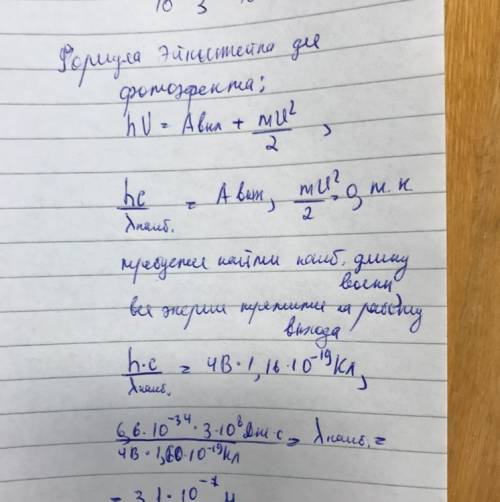 10 3
Формула Эйнштейна для
фотоэффекта:
hV = Aвых + mU²/2 ,
hc/λнаиб. = Aвых, mU²/2 = 0, т.к
требуется найти наиб. длину
волны
вся энергия на работу
выхода
h·c/λнаиб. = 4В·1,16·10⁻¹⁹Кл,
6,6·10⁻³⁴·3·10⁸Дж·с/4В·1,60·10⁻¹⁹Кл = λнаиб. =
= 3,1·10⁻⁷ м